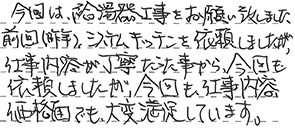 今回は、給湯器工事をお願い致しました
前回(昨年)、システムキッチンを依頼しましたが、
仕事内容が丁寧だった事から、今回も
依頼しましたが、今回も、仕事内容
価格面でも、大変満足しています。